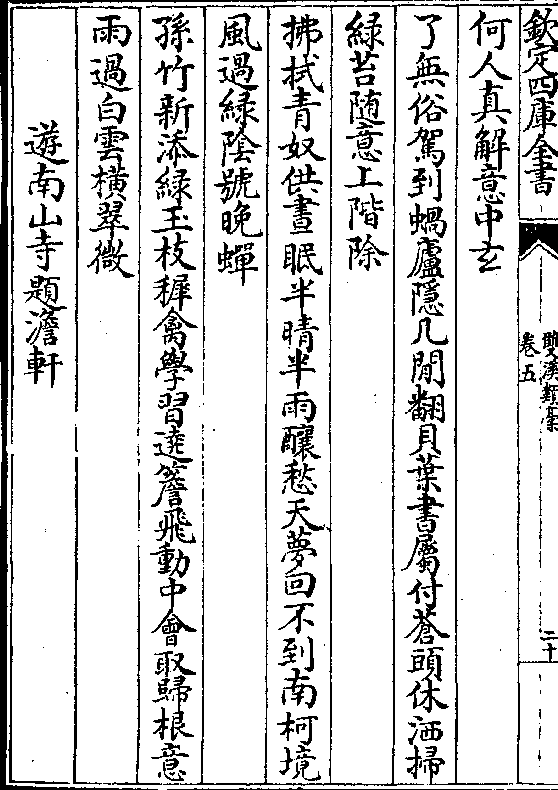 欽定四庫全書
雙溪類稾
卷五
二十
何人真解意中玄
了無俗駕到蝸廬隱几閒翻貝葉書屬付蒼頭休洒掃
綠苔随意上階除
拂拭青奴供晝眠半晴半雨釀愁天夢回不到南柯境
風過綠陰號晚蟬
孫竹新添綠玉枝穉禽學習遶簷飛動中會取歸根意
雨過白雲橫翠微
遊南山寺題澹軒